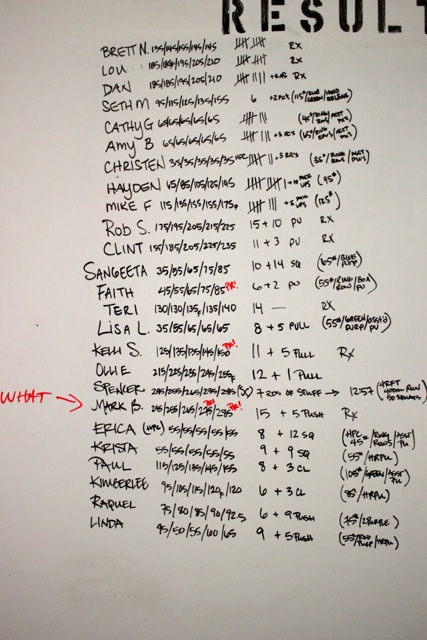 RESULT
BRETT N. 135/145/155/145/145 RX
LOU 185/185/195/205/210 RX
DAN 185/185/195/205/210 RX
SETH M 95/115/125/135/155 6
CATHY G 65/65/65/65/65
AMY B 65/65/65/65/65
CHRISTEN 35/35/35/35/35
HAYDEN 65/85/105/125/145 (95#)
MIKE F 115/135/155/155/175F (125#)
ROB S. 175/195/205/215/225 15 + 10 PU RX
CLINT 155/185/205/225/235 11 + 3 PU RX
SANGEETA 35/55/65/75/85 10 + 14 SQ (65#/BLUE PURP)
FAITH 45/55/65/75/85 PR! 6 + 2 PU (55#/RING ROW/BOX PU)
TERI 130/130/135F/135/140 14 — RX
LISA L. 35/85/65/65/65 8 + 5 PULL (55#/GREEN/ASST'D PURP/PU)
KELLI S. 125/135/135/145/150 PR! 11 + 5 PULL RX
OLLIE 215/225/235/245/255F 12 + 1 PULL
SPENCER + 7 RDS OF STUFF → 12:57 (4RFT 400M RUN/ 50 SQUATS)
WHAT → MARK B. 245/255/265/275/285 PR! PR! 15 + 5 PUSH RX
ERICA (HPC) 55/55/55/55/55 8 + 12 SQ (HPC 45#/RING ROWS/ASST PU)
KRISTA 55/55/55/55/55 9 + 9 SQ (55#/HRPU)
PAUL 115/125/135/145/155 8 + 3 CL (105#/GREEN/ASST PU)
KIMBERLEE 95/105/115/120F/120 6 + 3 CL (85#/HRPU)
RAQUEL 75/80/85/90/92.5 6 + 9 PUSH (75#/2PURPLE)
LINDA 45/50/55/60/65 9 + 5 PUSH (55#/RED PURP/HRPU)